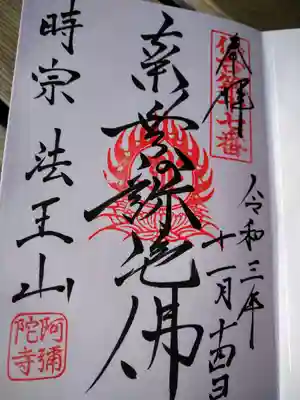 奉拝
令和三年
十一月十四日
南無阿弥陀佛
時宗 法王山
阿彌
陀寺